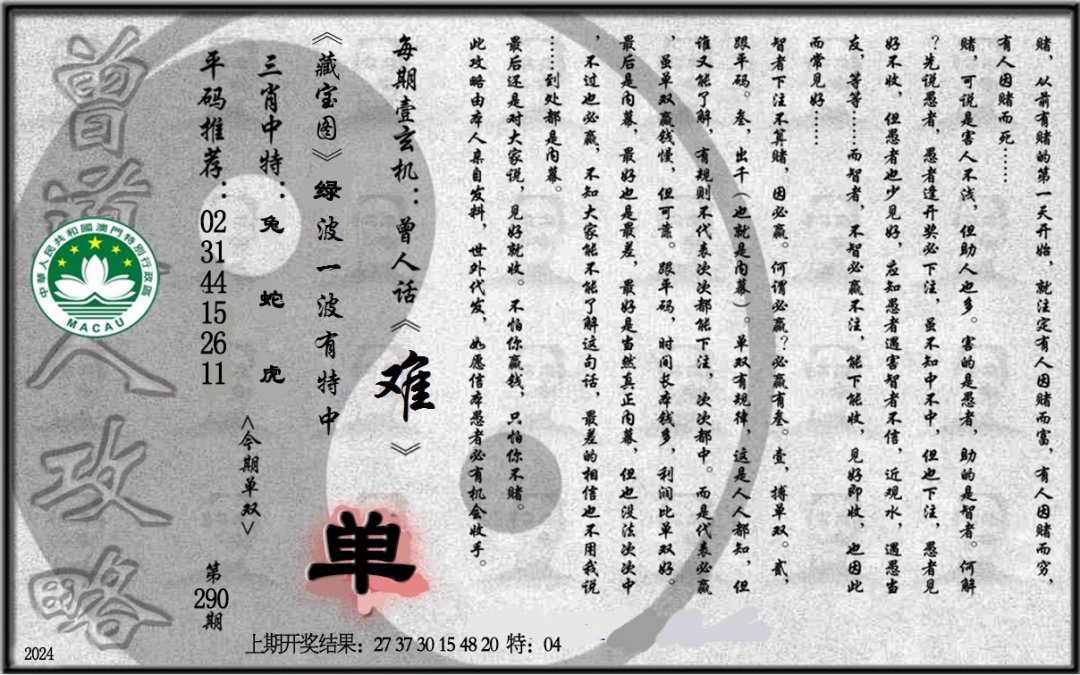 赌，从前有赌的第一天开始，就注定有人因赌而富，有人因赌而穷，
有人因赌而死……
赌，可说是害人不浅，但助人也多。害的是愚者，助的是智者。何解
？先说愚者，愚者逢开奖必下注，虽不知中不中，但也下注，愚者见
好不收，但愚者也少见好，应知愚者遇害智者不信，近观水，遇愚当
友，等等……而智者，不智必赢不注，能下能收，见好即收，也因此
而常见好……
智者下注不算赌，因必赢。何谓必赢？必赢有叁。壹，搏单双。贰，
跟平码。叁，出千（也就是内幕）。单双有规律，这是人人都知，但
谁又能了解，有规则不代表次次都能下注，次次都中。而是代表必赢
，虽单双赢钱慢，但可靠。跟平码，时间长本钱多，利润比单双好。
最后是内幕，最好也是最差，最好是当然真正内幕，但也没法次次中
，不过也必赢，不知大家能不能了解这句话，最差的相信也不用我说
……到处都是内幕。
最后还是对大家说，见好就收。不怕你赢钱，只怕你不赌。
此攻略由本人亲自发料，世外代发，如愿信本愚者必有机会收手。
每期壹玄机：曾人话《难》
《藏宝图》绿波一波有特中
单
三肖中特：兔 蛇 虎
<今期单双>
平码推荐：02 31 44 15 26 11
第290期
曾道人攻略
中華人民共和國澳門特別行政區
MACAU
上期开奖结果：27 37 30 15 48 20 特：04
2024